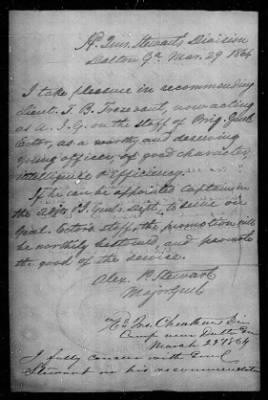 Hd. Qrs. Stewart's Division
Dalton Ga. Mar. 29 1864
I take pleasure in recommending
Lieut. T. B. Trezevant, now acting
as A. I. G. on the staff of Brig. Genl.
as a worthy and deserving
young officer, of good character,
intelligence & efficiency.
If he can be appointed Captain in
the Adjt. & I. Genl's Dept. to serve on
Genl. staff, the promotion will
be worthily bestowed, and promote
the good of the service.
Alex. P. Stewart
Major Genl.
Hd. Qrs. Cheatham's Div
Camp near Dalton Ga
March 29 1864
I fully concur with Genl
Stewart in his recommendation